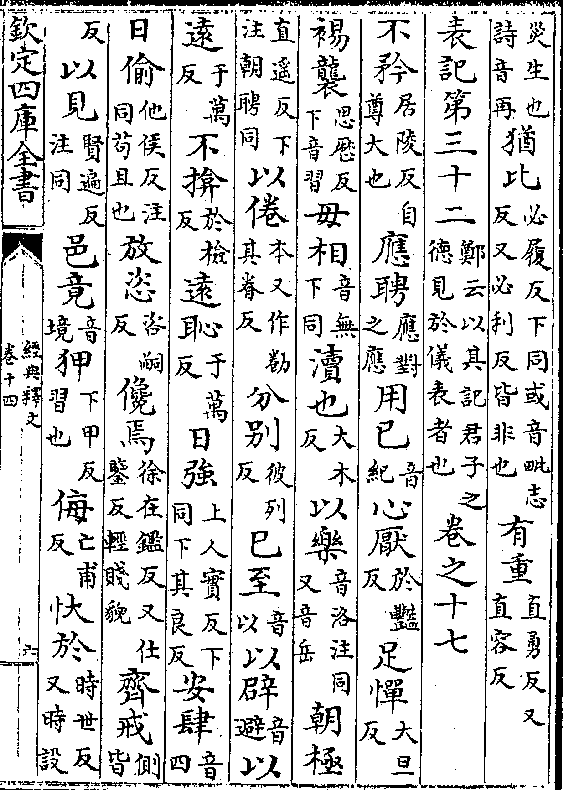 災生也詩音再猶比必履反下同或音毗志反又必利反皆非也有重直勇反又直容反
表記第三十二鄭云以其記君子之德見於儀表者也卷之十七
不矜居陵反自尊大也應聘應對之應用已音紀心厭於豔反足憚大旦反
裼襲思歷反下音習毋相音無下同瀆也大木反以樂音洛注同又音岳朝極
直遥反下注朝聘同以倦本又作勌其眷反分别彼列反已至音以以辟音避以
遠于萬反不揜於檢反遠恥于萬反日強上人實反下同下其良反安肆音四
日偷他侯反注同苟且也放恣咨嗣反儳焉徐在鑑反又仕鑒反輕賤貌齊戒側皆
反以見賢遍反注同邑竟音境狎下甲反習也侮亡甫反忕於時世反又時設
欽定四庫全書
經典釋文
卷十四
六